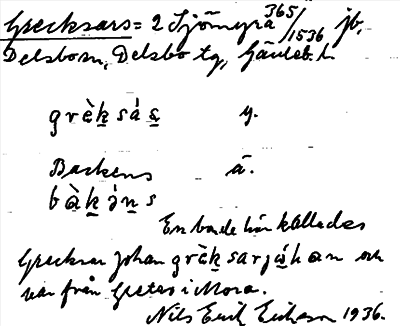 Grecksars = 2 Sjömyra 365/1536 jb,
Delsbo sn, Delsbo tg, Gävleb. l.
grèksás y.
Backens ä.
bàkə́ns
En bonde här kallades
Grecksar Johan grèksarjóhan och
var från Gretas i Mora.
Nils Erik Eriksson 1936.